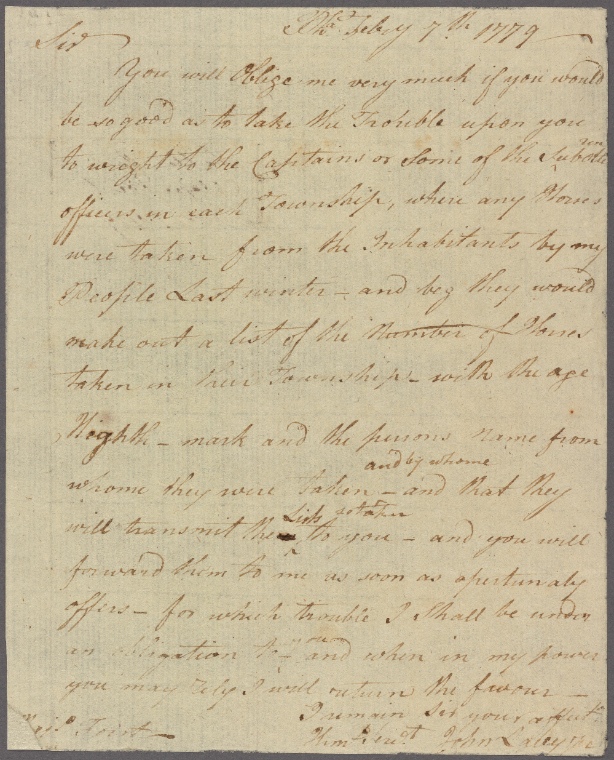 Pha. Feby 7th 1779
Sir
You will Oblige me very much if you would
be so good as to take the Trouble upon you
to wright to the Captains or Some of the Subordin
officers in each Township, where any Horses
were taken from the Inhabitants by my
People Last winter - and beg they would
make out a list of the Number of Horses
taken in their Township - with the age
Highth - mark and the persons Name from
and by whome
whome they were taken - and that they
Lists
will transmit the to you - and you will
forward them to me as soon as opertunaly
offers - for which trouble I Shall be under
you
an obligation to - and when in my power
you may Rely I will return the favour -
I remain Sir your affect
Hum Servt John Lacey